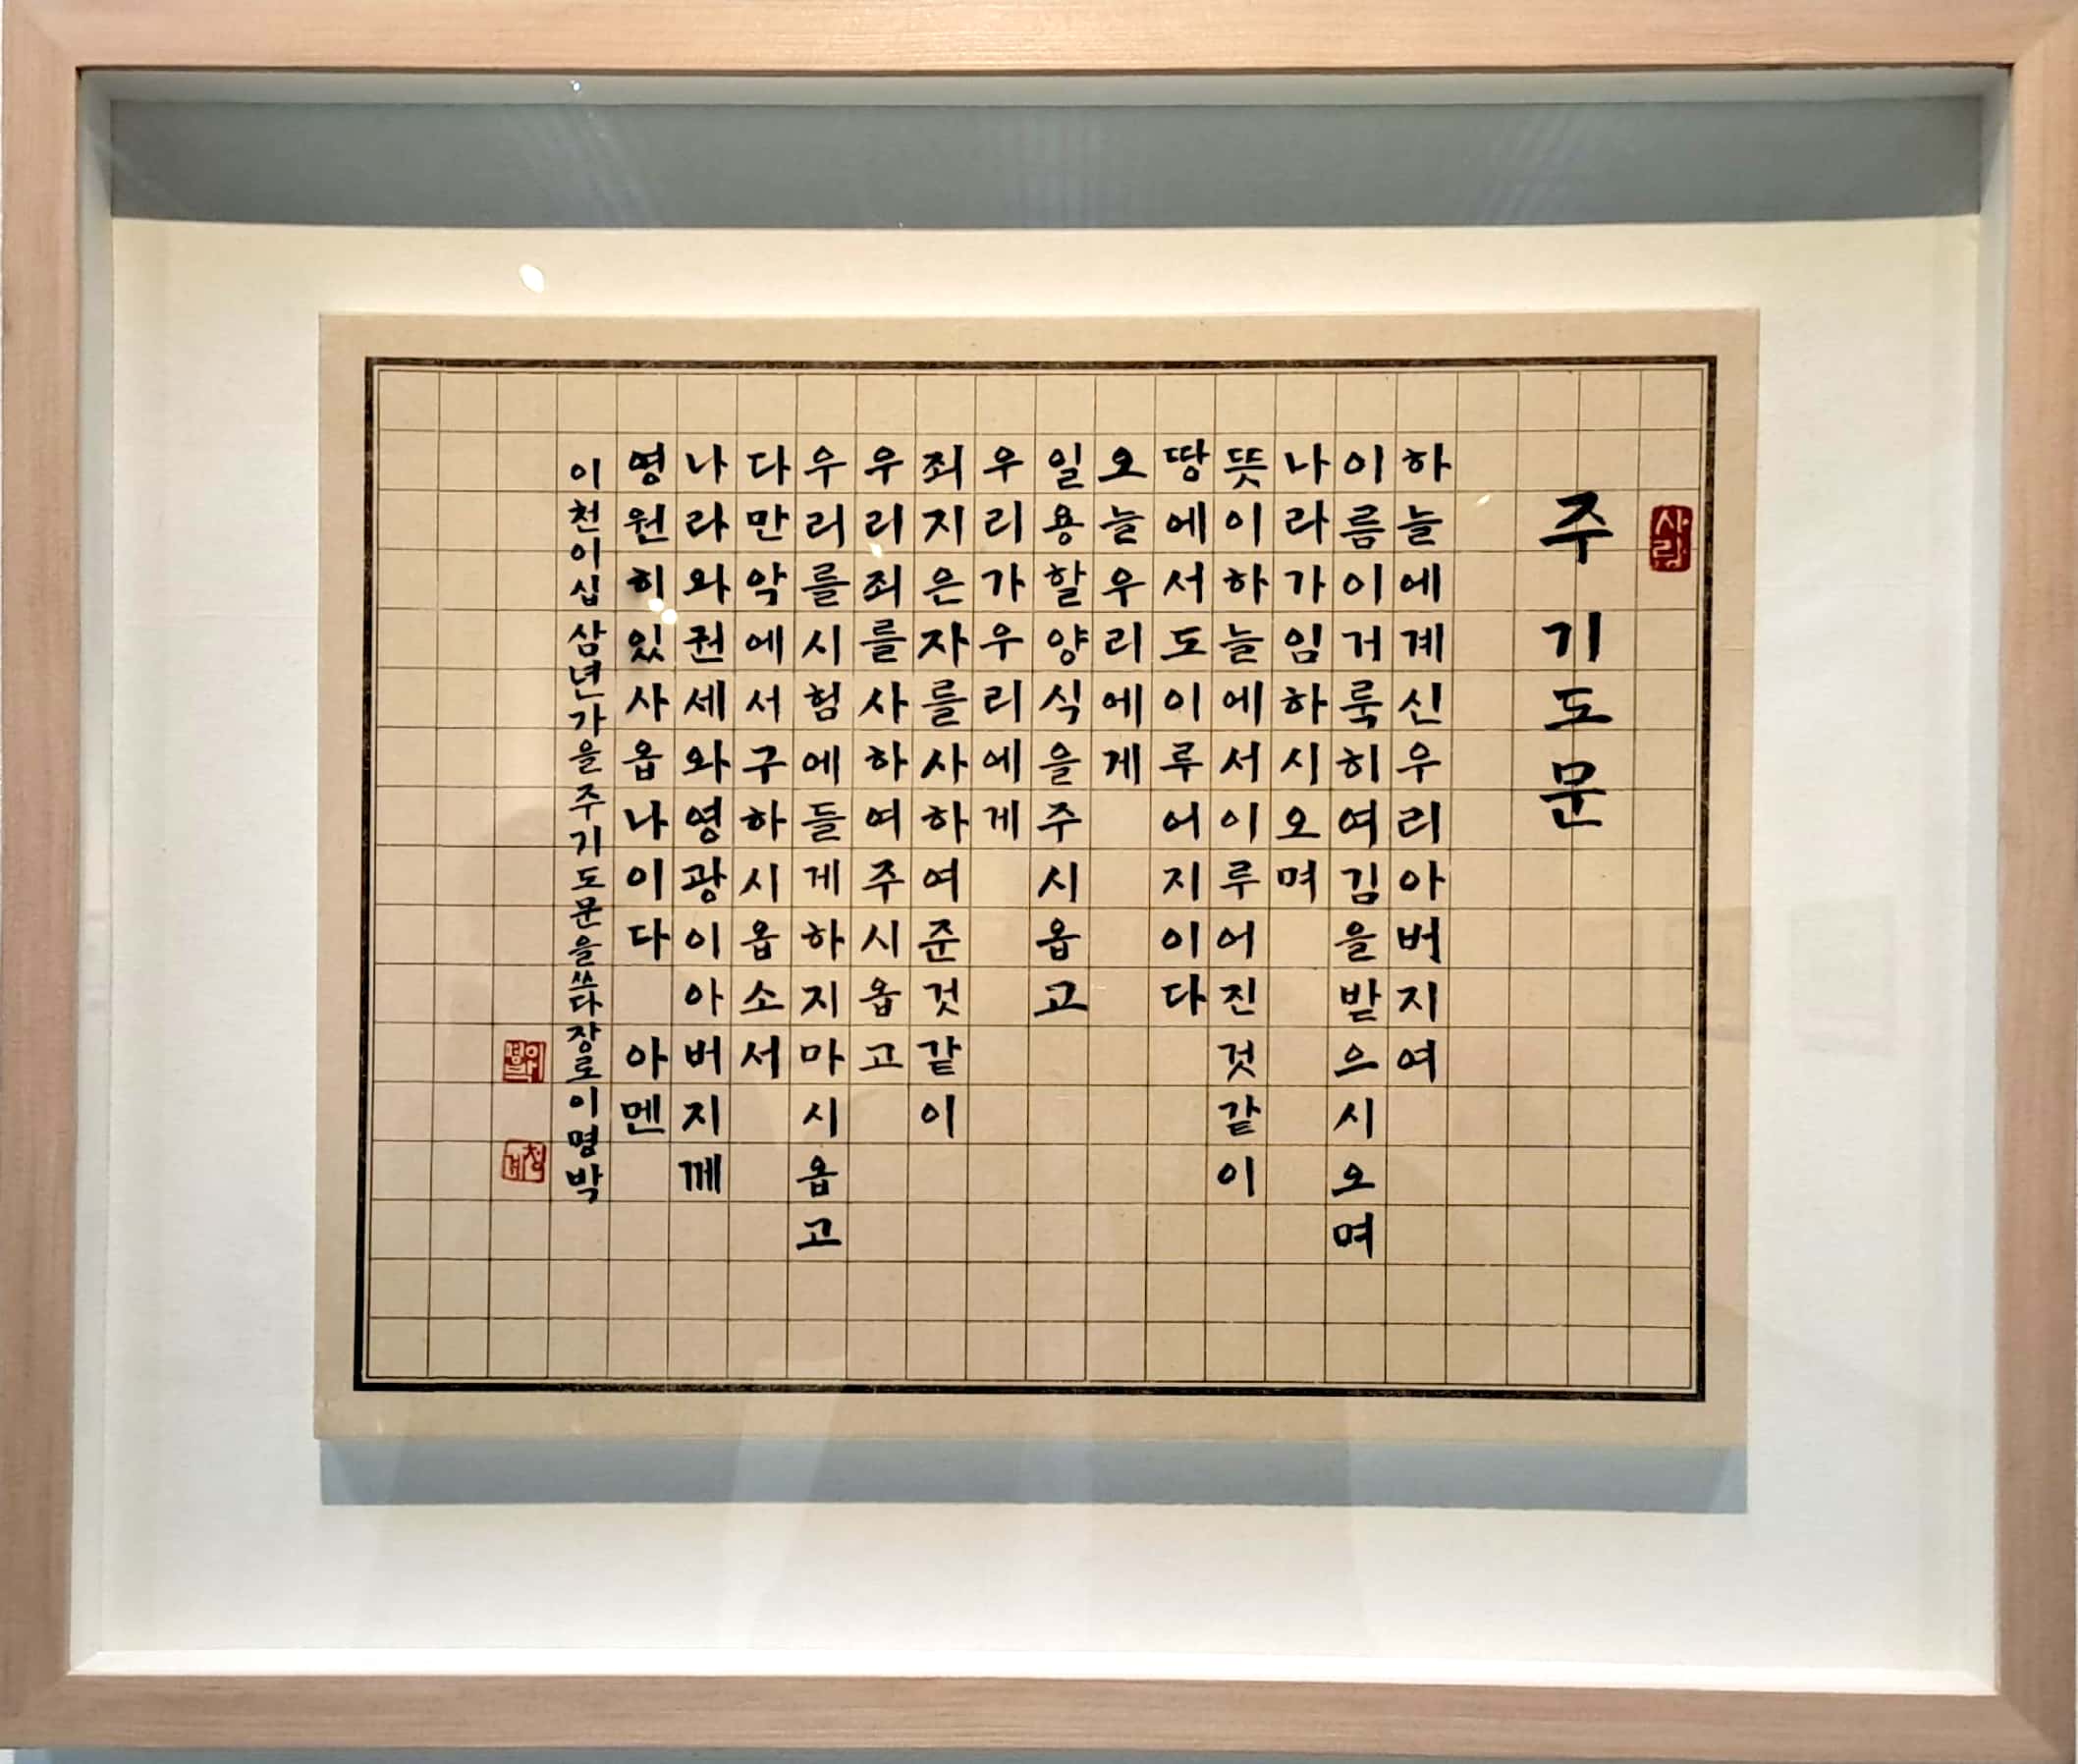 사랑
주기도문
하늘에계신우리아버지여
이름이거룩히여김을받으시오며
나라가임하시오며
뜻이하늘에서이루어진것같이
땅에서도이루어지이다
오늘우리에게
일용할양식을주시옵고
우리가우리에게
죄지은자를사하여준것같이
우리죄를사하여주시옵고
우리를시험에들게하지마시옵고
다만악에서구하시옵소서
나라와권세와영광이아버지께
영원히있사옵나이다 아멘
이천이십삼년가을주기도문을쓰다장로이명박
이명박
청계